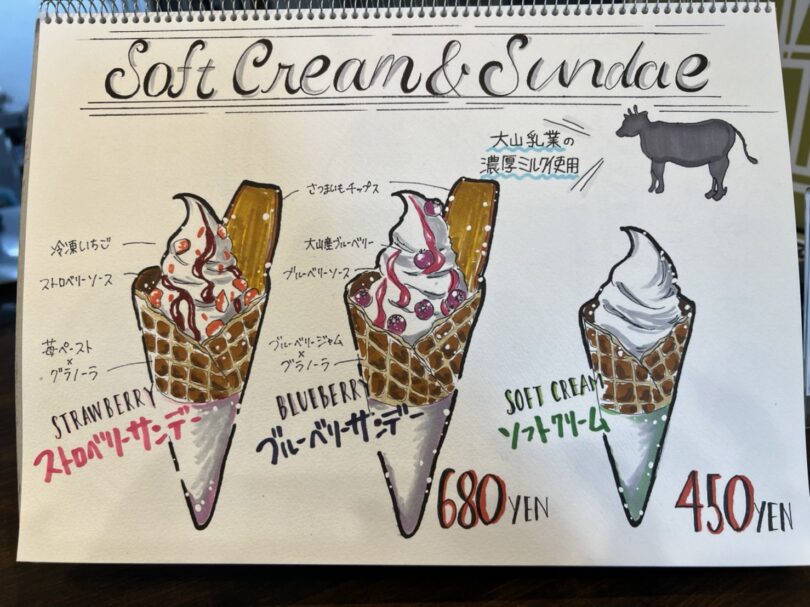 Soft Cream & Sundae
大山乳業の
濃厚ミルク使用
さつまいもチップス
冷凍いちご
ストロベリーソース
苺ペースト
×
グラノーラ
大山産ブルーベリー
ブルーベリーソース
ブルーベリージャム
×
グラノーラ
STRAWBERRY
ストロベリーサンデー
BLUEBERRY
ブルーベリーサンデー
680YEN
SOFT CREAM
ソフトクリーム
450YEN